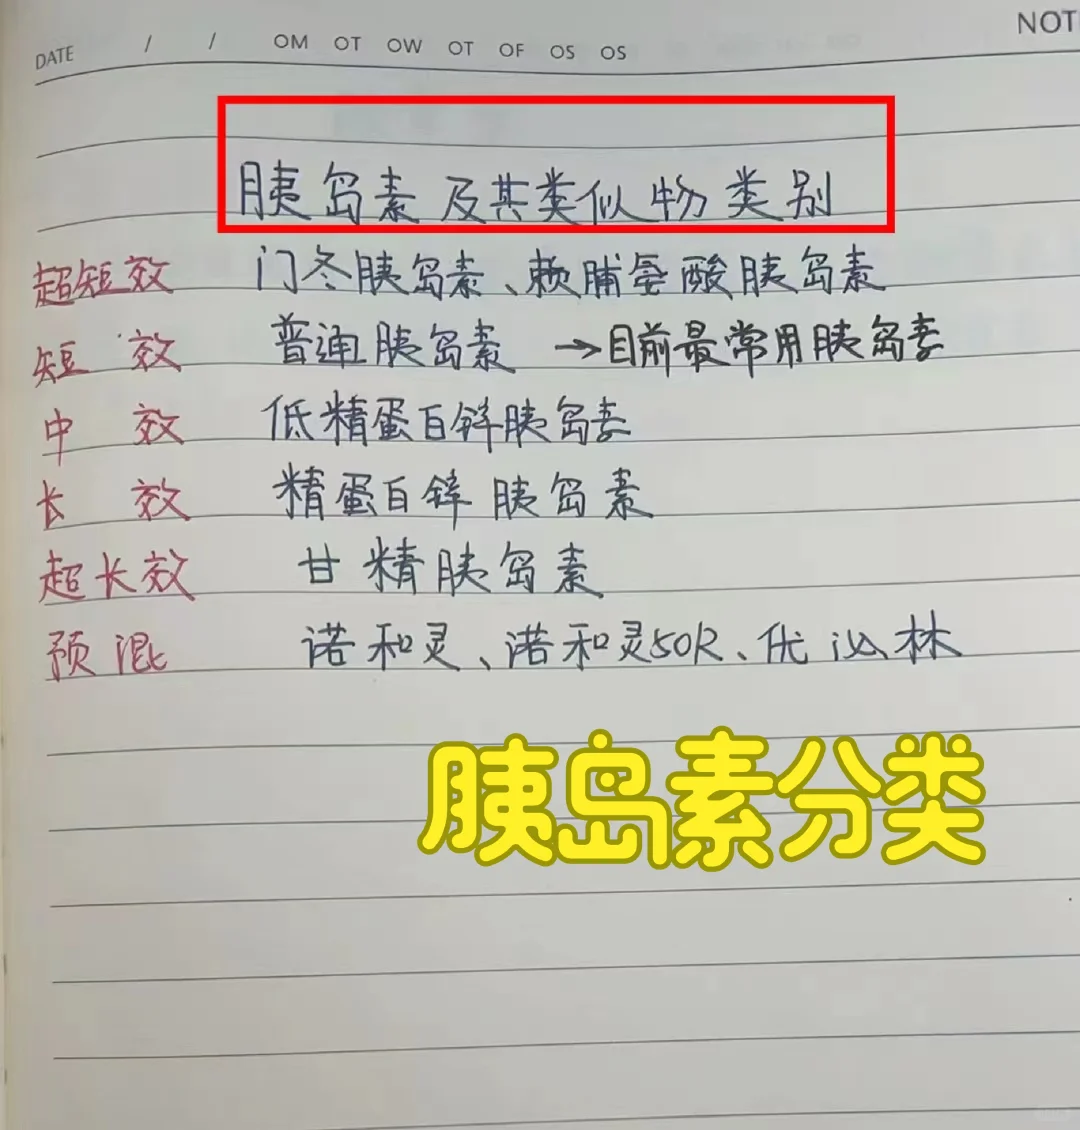 NOT
DATE / / OM OT OW OT OF OS OS
胰岛素及其类似物类别
超短效 门冬胰岛素、赖脯氨酸胰岛素
短效 普通胰岛素 →目前最常用胰岛素
中效 低精蛋白锌胰岛素
长效 精蛋白锌胰岛素
超长效 甘精胰岛素
预混 诺和灵、诺和灵50R、优泌林
胰岛素分类